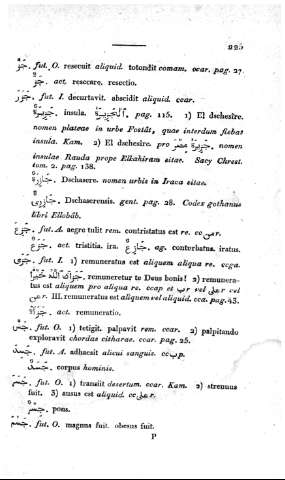 225
جَزَّ. fut. O. resecuit aliquid. totondit comam. ccar. pag. 27.
جَزٌّ. act. resecare. resectio.
جَزَرَ. fut. I. decurtavit. abscidit aliquid. ccar.
جَزِيرَةٌ. insula. الْجَزِيرَةُ. pag. 115. 1) El dschesîre.
nomen plateae in urbe Fostât, quae interdum fiebat
insula. Kam. 2) El dschesîre. pro جَزِيرَةُ مِصْرَ. nomen
insulae Rauda prope Elkahiram sitae. Sacy Chrest.
tom. 2. pag. 138.
جَازِرَةٌ. Dschasere. nomen urbis in Iraca sitae.
جَازِرِىٌّ. Dschaserensis. gent. pag. 28. Codex gothanus
libri Ellobâb.
جَزِعَ. fut. A. aegre tulit rem. contristatus est re. cc مِن ar.
جَزَعٌ. act. tristitia. ira. جَازِعٌ. ag. conturbatus. iratus.
جَزَى. fut. I. 1) remuneratus est aliquem aliqua re. ccga.
جَزَاكَ اللّٰهُ خَيْرًا. remuneretur te Deus bonis! 2) remunera-
tus est aliquem pro aliqua re. ccap et ب r vel على r vel
عن r. III. remuneratus est aliquem vel aliquid. cca. pag. 43.
جَزَاءٌ. act. remuneratio.
جَسَّ. fut. O. 1) tetigit. palpavit rem. ccar. 2) palpitando
exploravit chordas citharae. ccar. pag. 25.
جَسِدَ. fut. A. adhaesit alicui sanguis. cc ب p.
جَسَدٌ. corpus hominis.
جَسَرَ. fut. O. 1) transiit desertum. ccar. Kam. 2) strenuus
fuit. 3) ausus est aliquid. cc على r.
جِسْرٌ. pons.
جَسُمَ. fut. O. magnus fuit. obesus fuit.
P